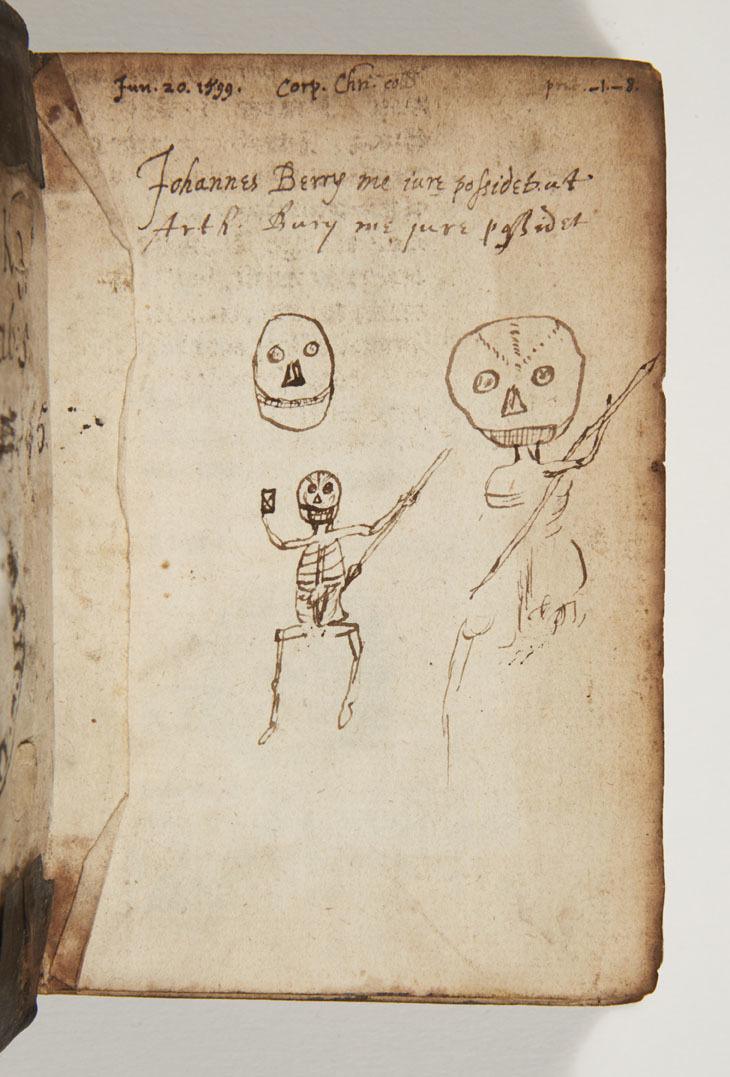 Jun. 20. 1599. Corp. Chri. coll pric. -1.-8.
Johannes Berry me iure possidebat
Arth. Bury me jure possidet